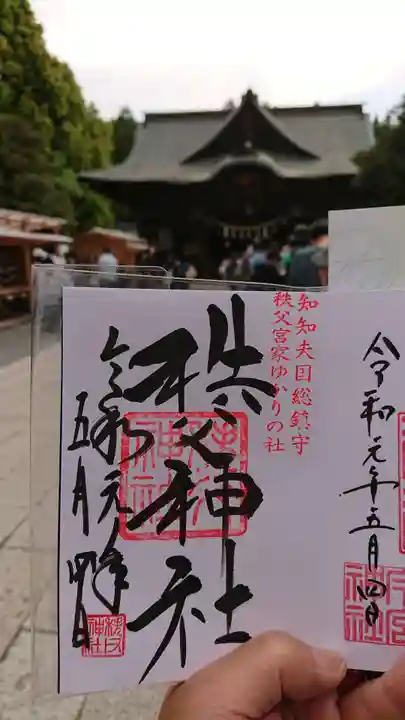 令和元年五月四日
知知夫国総鎮守
秩父宮家ゆかりの社
秩父神社
令和元年五月四日
秩父神社